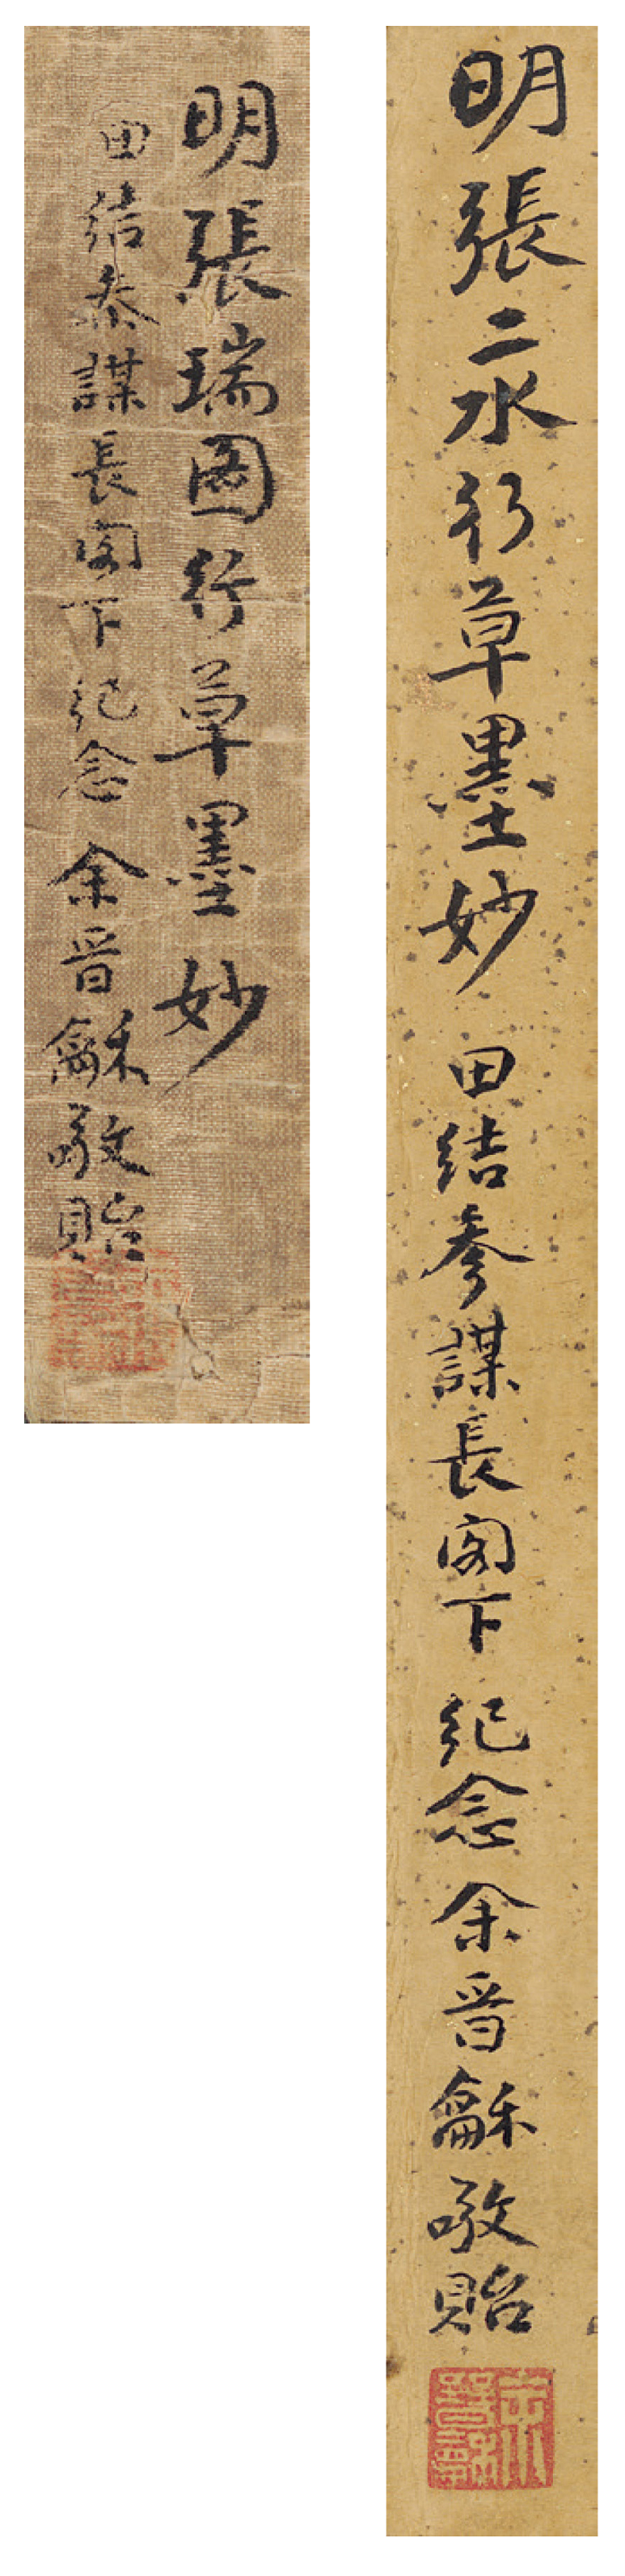 明張二水行草墨妙 田結參謀長閣下 紀念 余晉龢敬貽
明張瑞圖行草墨妙
田結參謀長閣下紀念 余晉龢敬貽